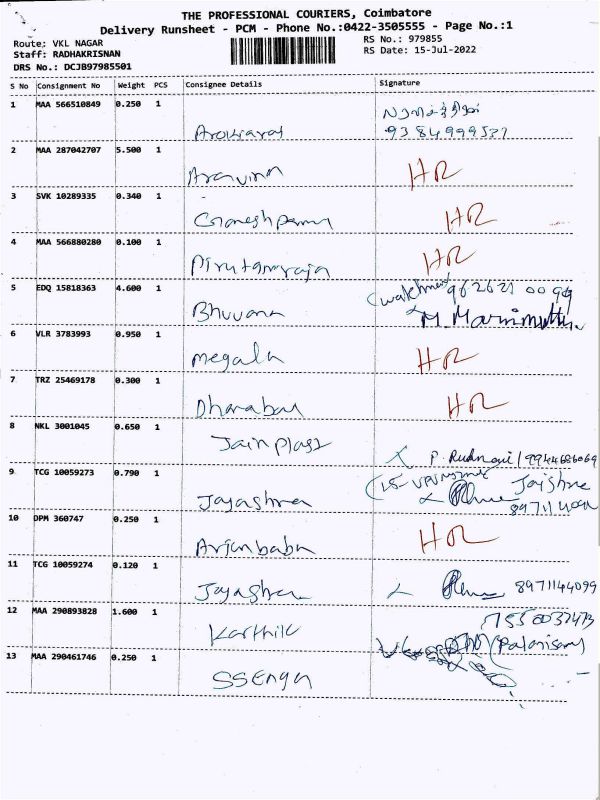 THE PROFESSIONAL COURIERS, Coimbatore
Delivery Runsheet - PCM - Phone No.:0422-3505555 - Page No.:1
Route: VKL NAGAR
RS No.: 979855
Staff: RADHAKRISNAN
RS Date: 15-Jul-2022
DRS No.: DCJB97985501
S No Consignment No Weight PCS Consignee Details Signature
1 MAA 566510849 0.250 1
9384999537
2 MAA 287042707 5.500 1
Aravinn HR
3 SVK 10289335 0.340 1
HR
4 MAA 566880280 0.100 1
HR
5 EDQ 15818363 4.600 1
Bhuvana
M. Marimuthu
6 VLR 3783993 0.950 1
Megala HR
7 TRZ 25469178 0.300 1
HR
8 NKL 3001045 0.650 1
Jainplast
9944686069
9 TCG 10059273 0.790 1
Jaishree
Jayashree
10 DPM 360747 0.250 1
Arjunbabu HR
11 TCG 10059274 0.120 1
Jayashree 8971144099
12 MAA 290893828 1.600 1
Karthik
(Palanisamy
13 MAA 290461746 0.250 1